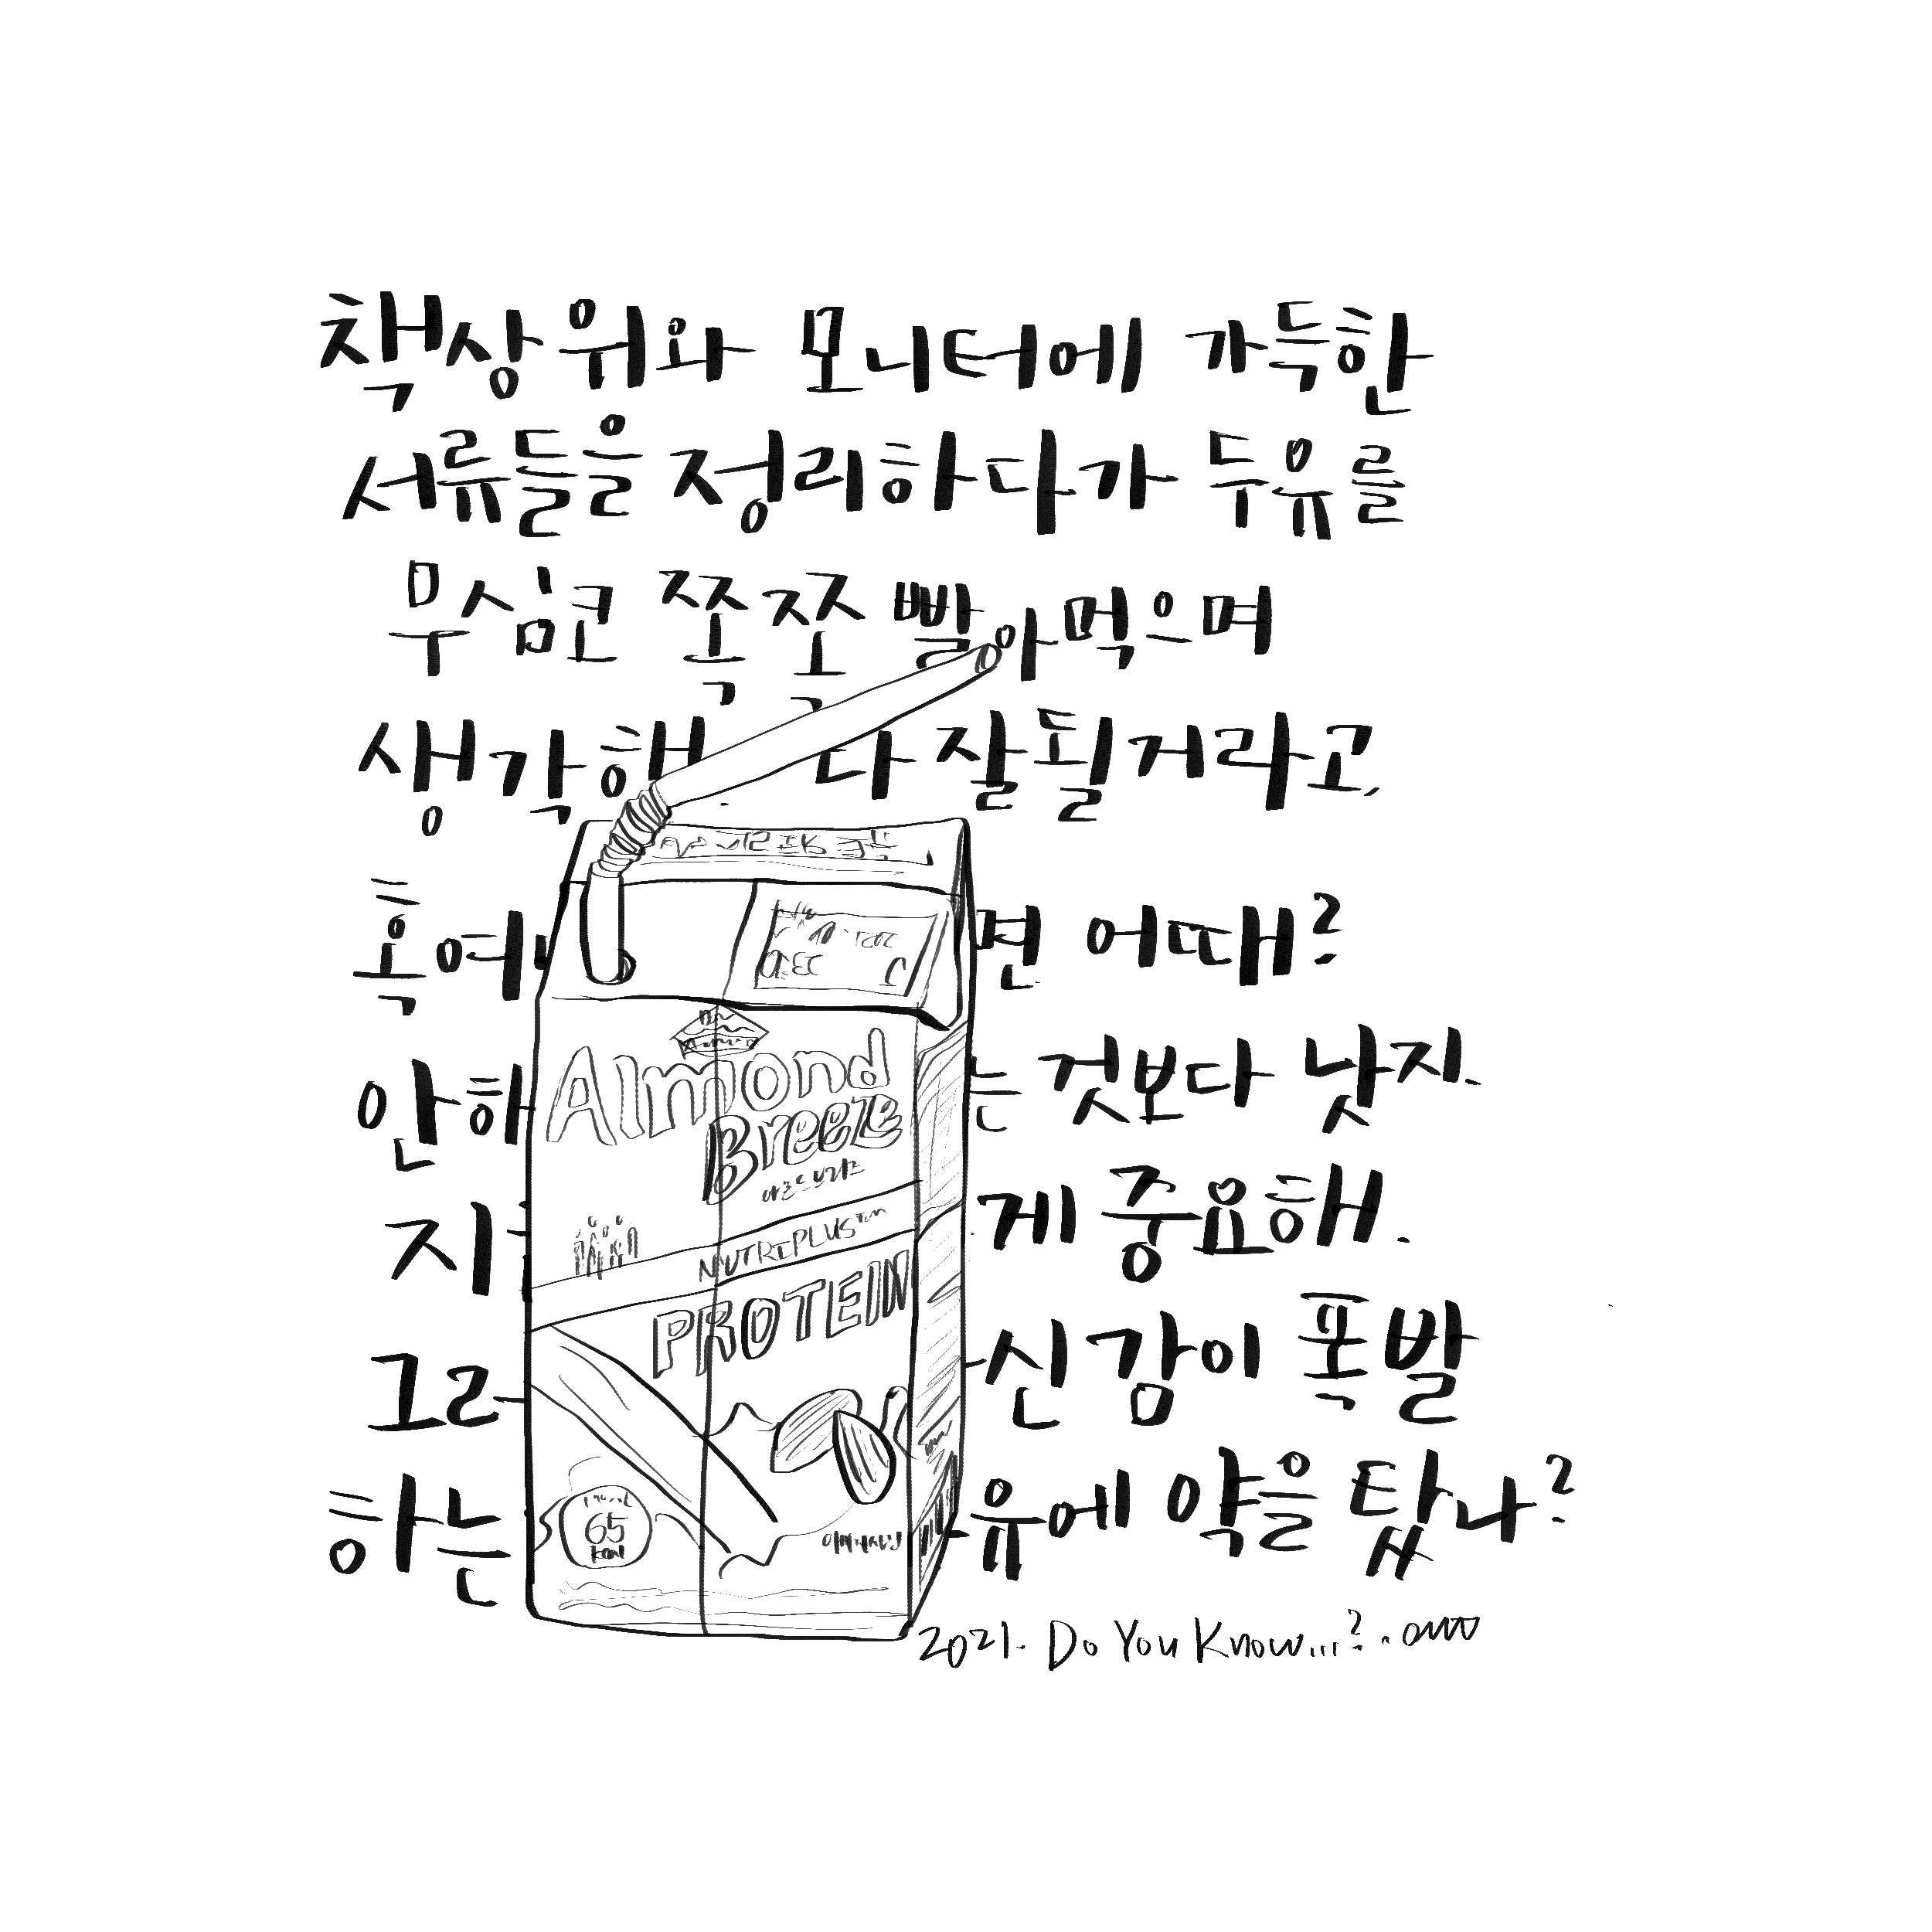 책상 위와 모니터에 가득한
서류들을 정리하다가 두유를
무심코 쪽쪽 빨아먹으며
생각해. 다 잘될거라고.
혹여 면 어때?
안해 는 것보다 낫지.
지 게 중요해.
그러 신감이 폭발
하는 유에 약을 탔나?
Almond
Breeze
아몬드브리즈
NUTRIPLUS™
PROTEIN
65
kcal
2021. Do You Know...?